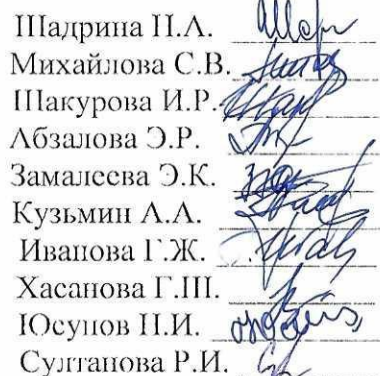 Шадрина Н.А.
Михайлова С.В.
Шакурова И.Р.
Абзалова Э.Р.
Замалеева Э.К.
Кузьмин А.А.
Иванова Г.Ж.
Хасанова Г.Ш.
Юсупов Н.И.
Султанова Р.И.